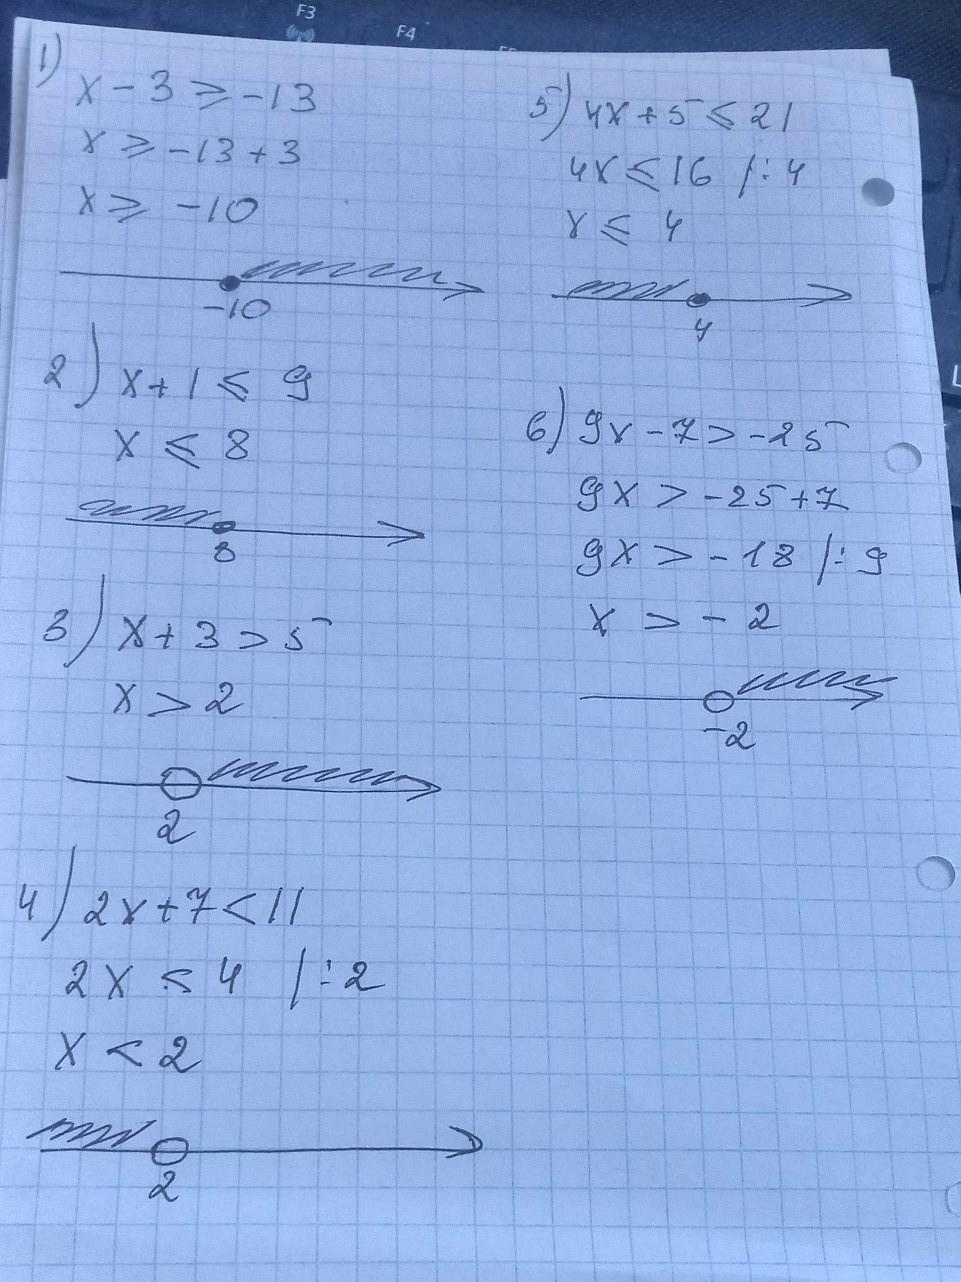 F3
F4
1)
x - 3 ≥ -13
x ≥ -13 + 3
x ≥ -10
-10
2) x + 1 ≤ 9
x ≤ 8
8
3) x + 3 > 5
x > 2
2
4) 2x + 7 < 11
2x ≤ 4 /: 2
x < 2
2
5) 4x + 5 ≤ 21
4x ≤ 16 /: 4
x ≤ 4
4
6) 9x - 7 > -25
9x > -25 + 7
9x > -18 /: 9
x > -2
-2
L